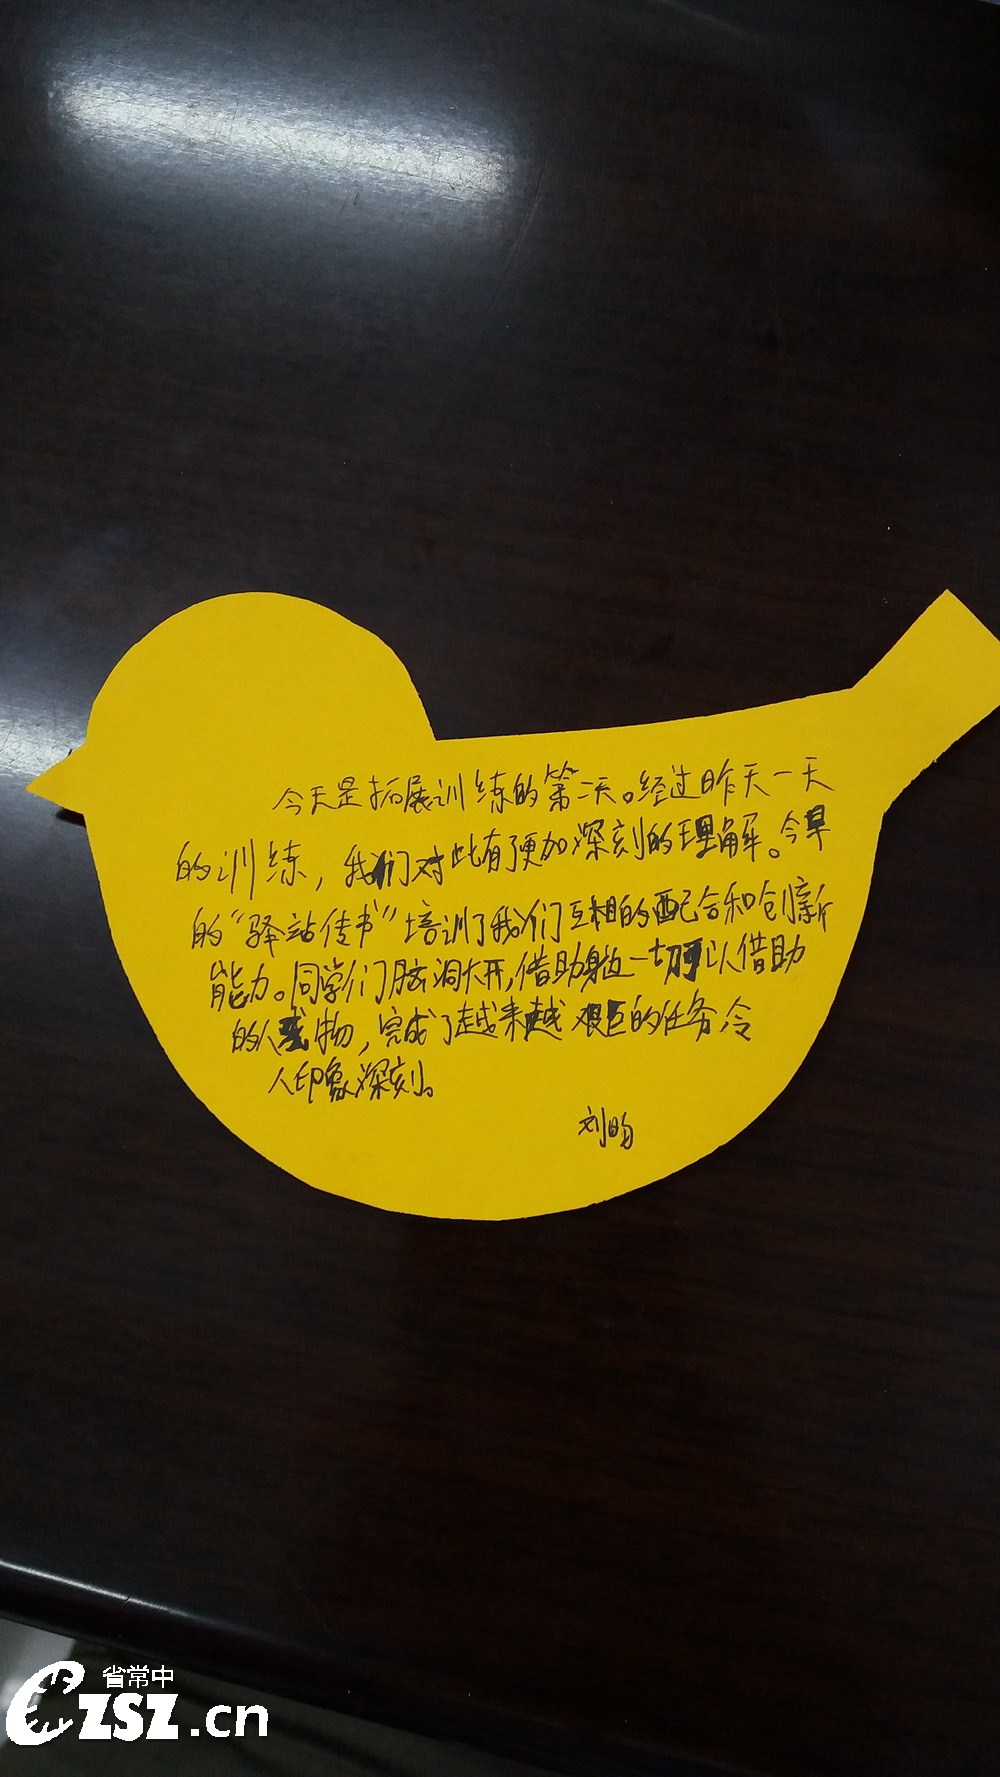 今天是拓展训练的第二天。经过昨天一天
的训练，我们对此有了更加深刻的理解。今早
的“驿站传书”培训了我们互相的配合和创新
能力。同学们脑洞大开，借助身边一切可以借助
的人或物，完成了越来越艰巨的任务，令
人印象深刻。
刘昀
省常中
CZSZ.cn